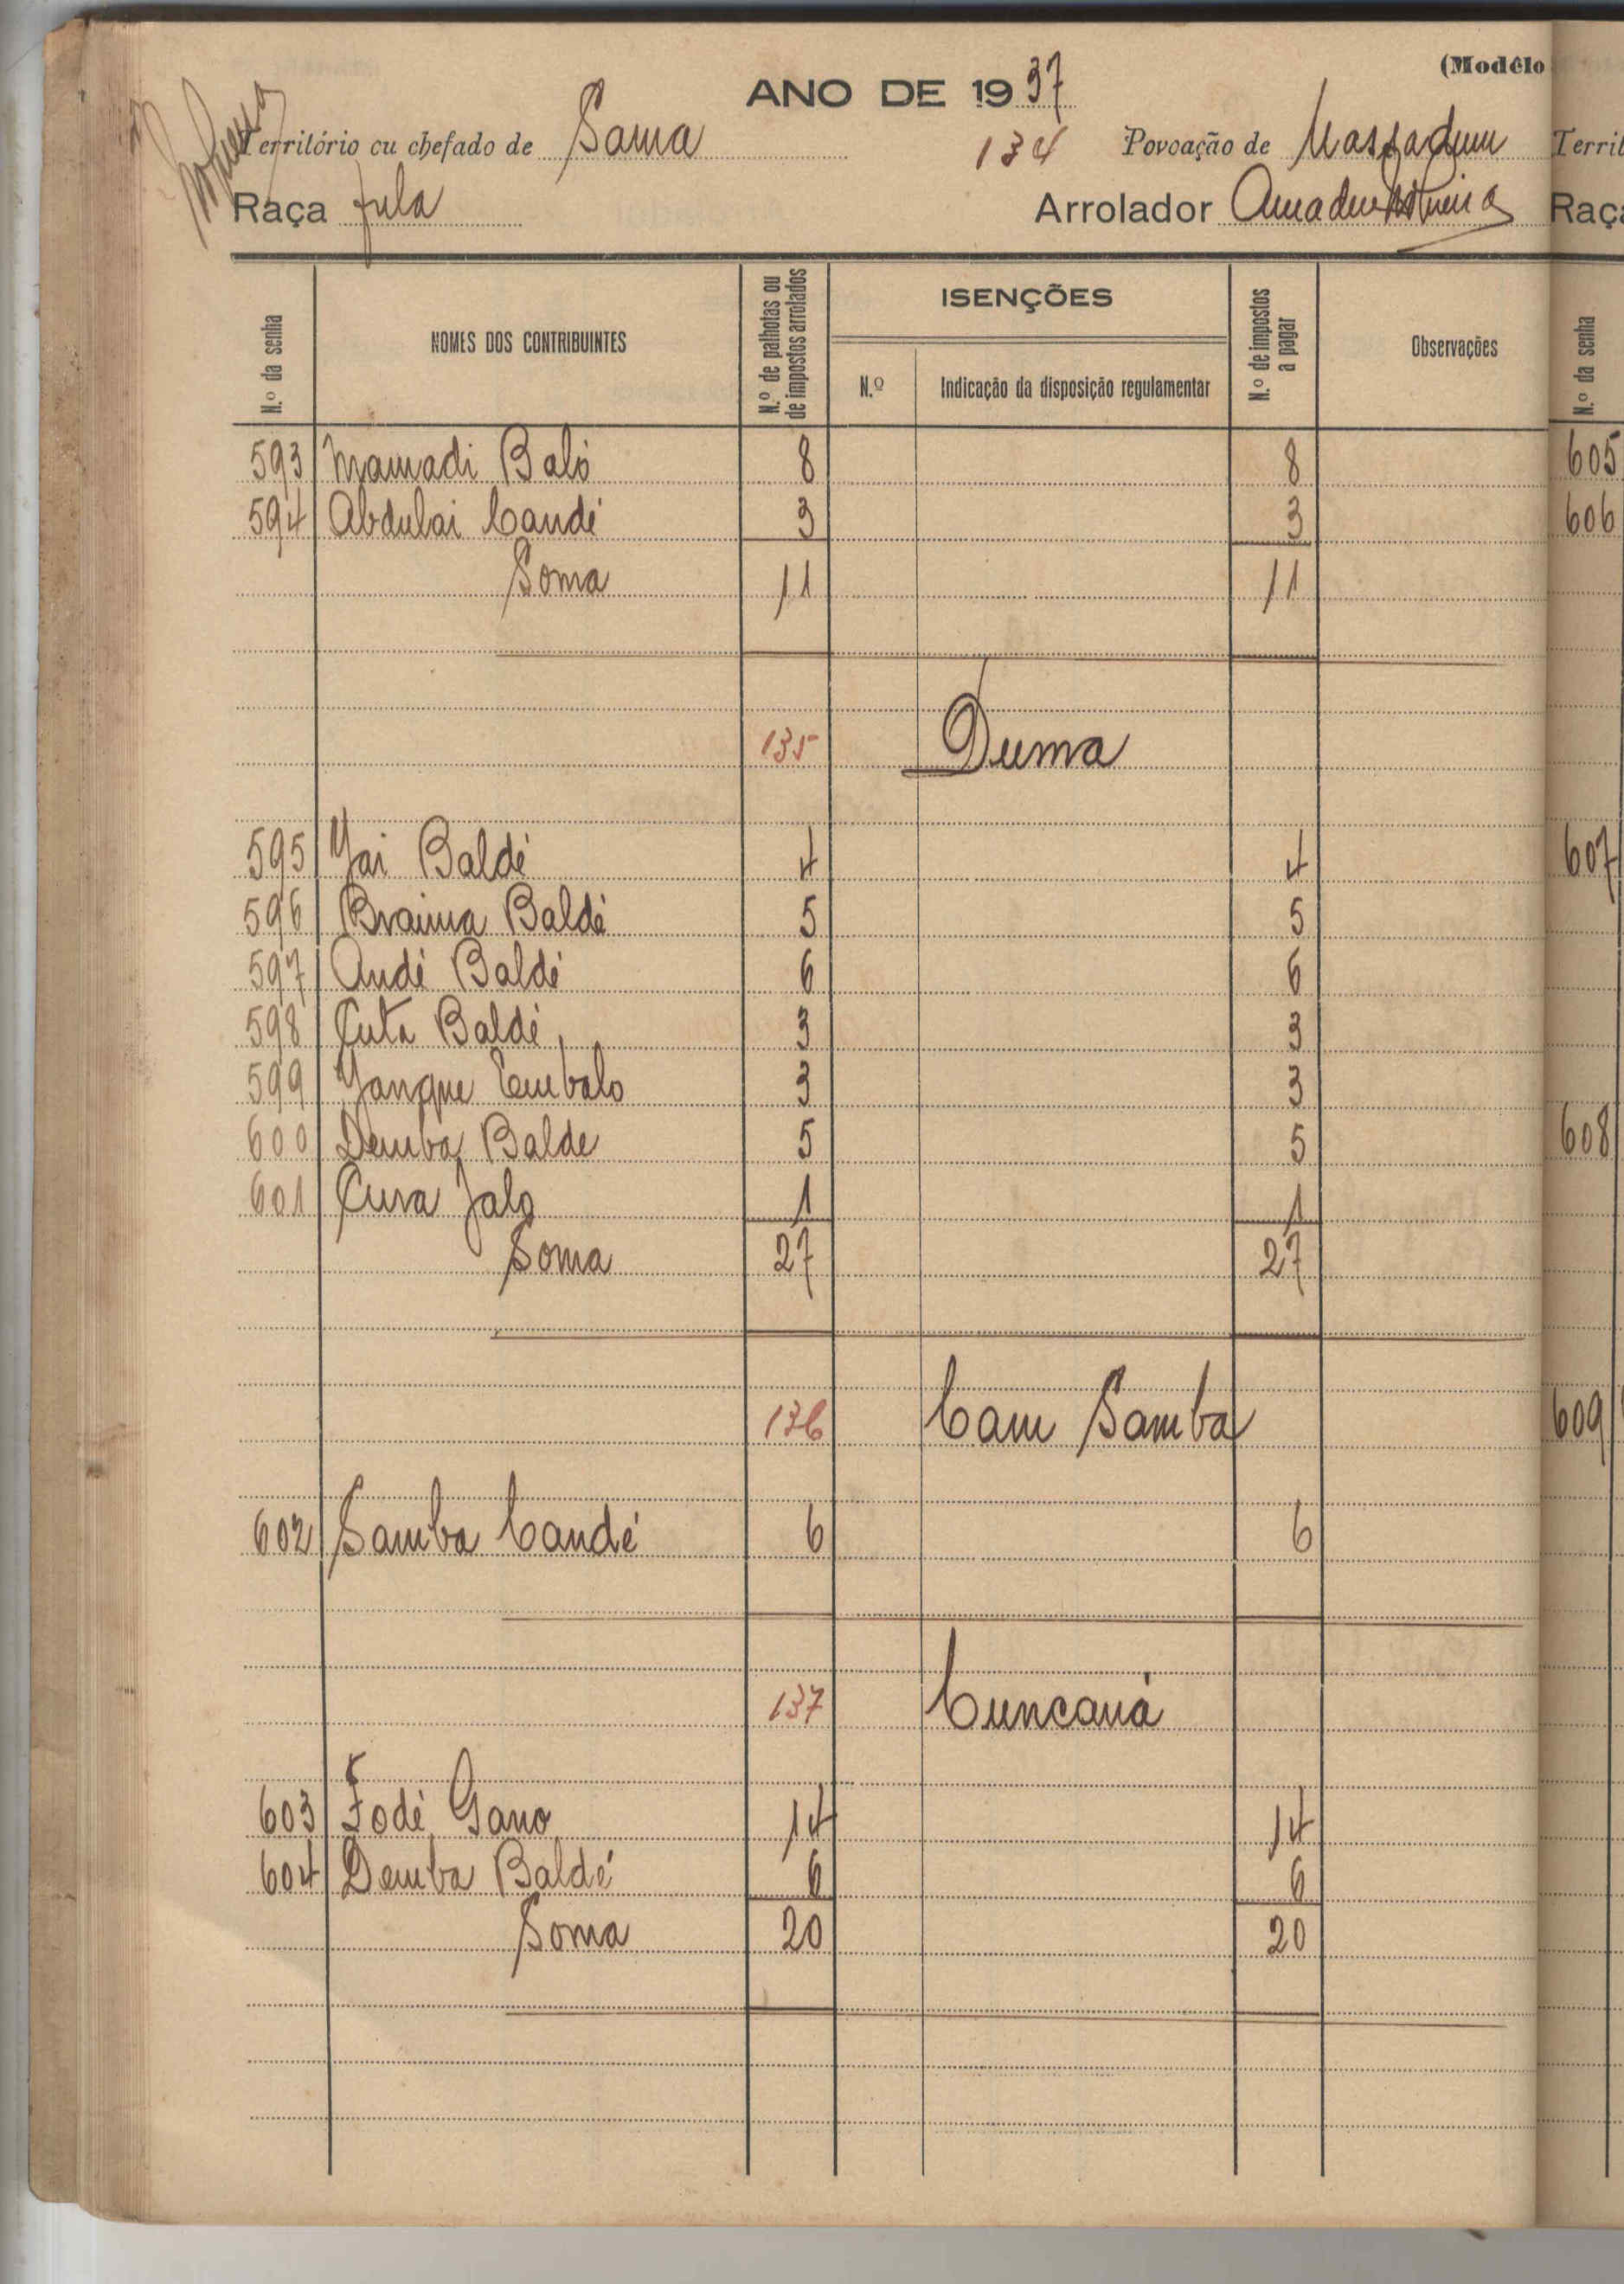 (Modêlo
ANO DE 1937
Território ou chefado de Sama 134 Povoação de
Raça fula Arrolador Amadeu Nogueira
N.º da senha NOMES DOS CONTRIBUINTES N.º de palhotas ou de impostos arrolados ISENÇÕES N.º Indicação da disposição regulamentar N.º de impostos a pagar Observações
593 Mamadi Baló 8 8
594 Abdulai Candé 3 3
Soma 11 11
135 Duma
595 Yai Baldé 4 4
596 Braima Baldé 5 5
597 Andé Baldé 6 6
598 Cuta Baldé 3 3
599 Yangue Embalo 3 3
600 Demba Balde 5 5
601 Cura Jalo 1 1
Soma 27 27
136 Cam Samba
602 Samba Candé 6 6
137 Cuncaná
603 Fodé Gano 14 14
604 Demba Baldé 6 6
Soma 20 20
Territ
Raça
N.º da senha
605
606
607
608
609